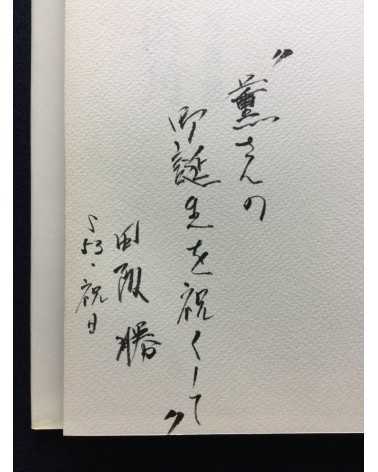 〝薫さんの
御誕生を祝くして〟
田阪 勝
S53.祝日